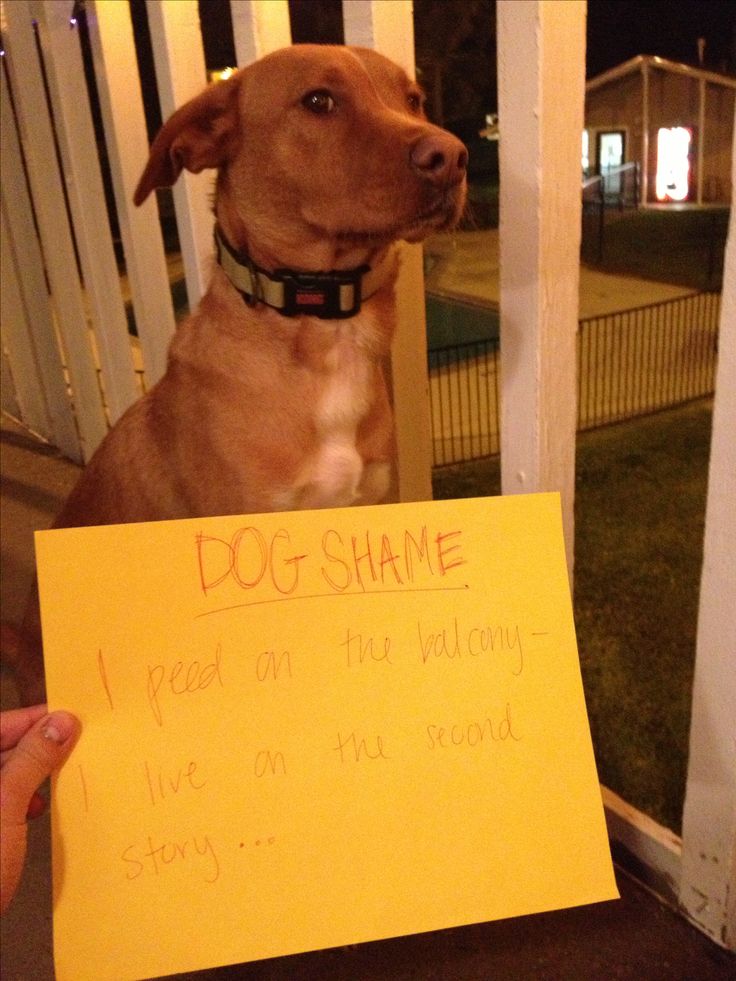 KONG
DOG SHAME
I peed on the balcony -
I live on the second
story...